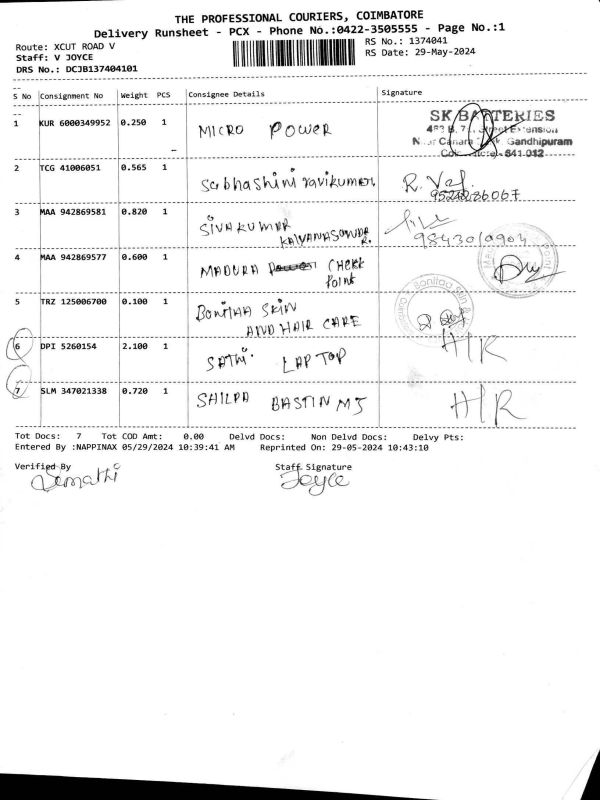 THE PROFESSIONAL COURIERS, COIMBATORE
Delivery Runsheet - PCX - Phone No.:0422-3505555 - Page No.:1
Route: XCUT ROAD V
RS No.: 1374041
Staff: V JOYCE
RS Date: 29-May-2024
DRS No.: DCJB137404101
S No Consignment No Weight PCS Consignee Details Signature
1 KUR 6000349952 0.250 1 MICRO POWER
SK BATTERIES
Gandhipuram
641 012
2 TCG 41006051 0.565 1 Subhashini ravikumar R.
3 MAA 942869581 0.820 1 SIVAKUMAR
R.
4 MAA 942869577 0.600 1 MADURA CHEKK
Point
5 TRZ 125006700 0.100 1 Bontiaa SKIN
AND HAIR CARE
6 DPI 5260154 2.100 1 SATHI LAPTOP H/R
7 SLM 347021338 0.720 1 SHILPA BASTIN MJ H/R
Tot Docs: 7 Tot COD Amt: 0.00 Delvd Docs: Non Delvd Docs: Delvy Pts:
Entered By :NAPPINAX 05/29/2024 10:39:41 AM Reprinted On: 29-05-2024 10:43:10
Verified By Staff Signature
Joyce